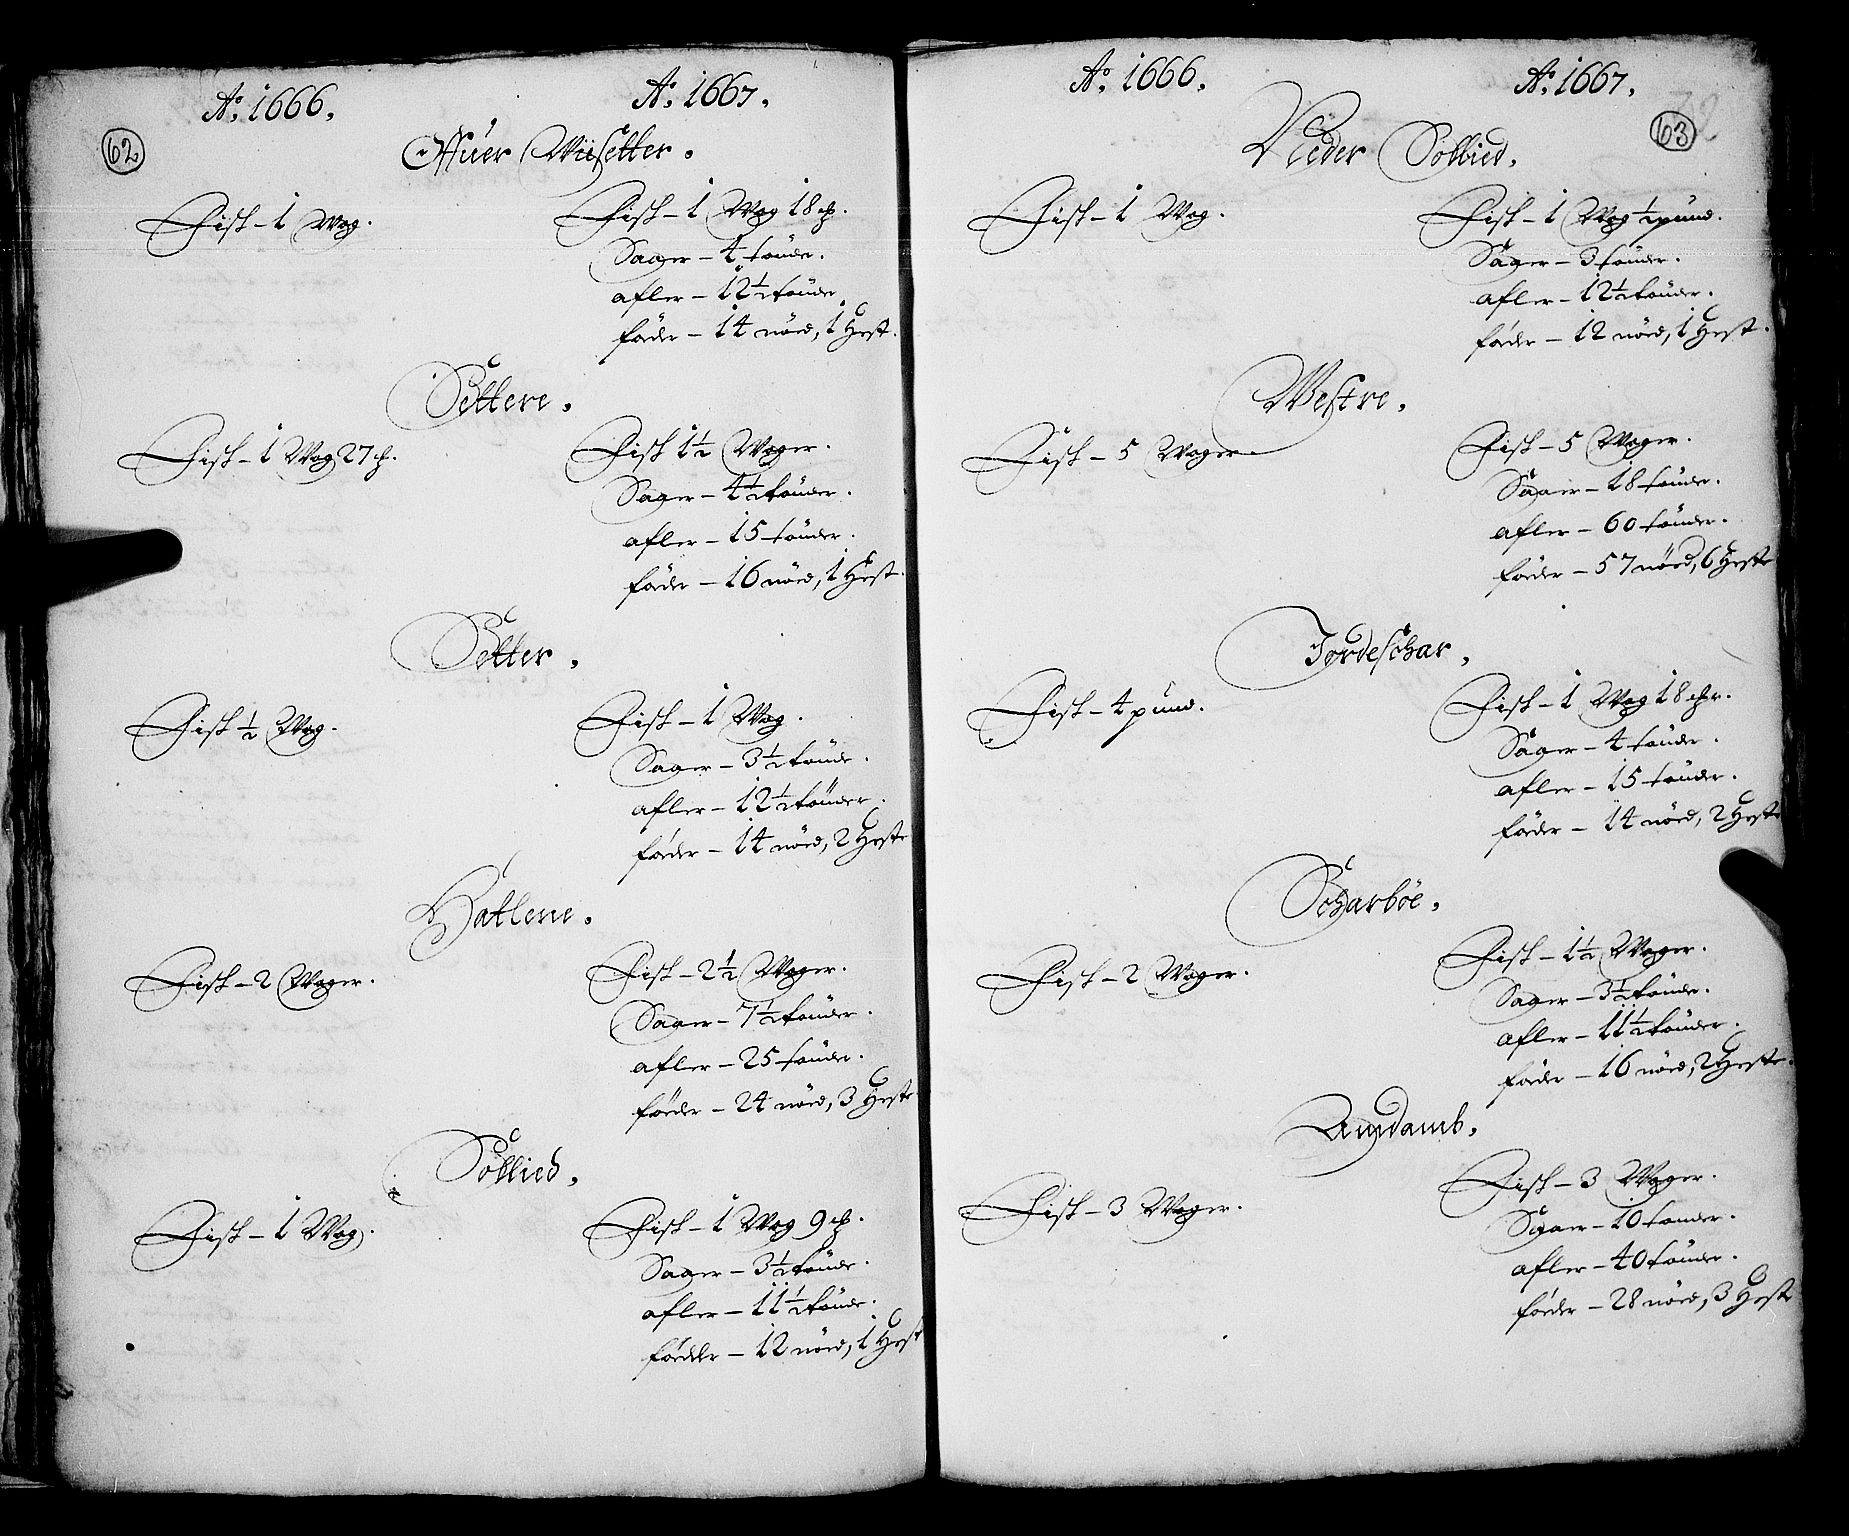 62
Ao. 1666.
Ao. 1667.
Offuer Wiisetter.
Fisk - 1 Wog.
Fisk - 1 Wog 18 ℔.
Saaer - 4 tønde.
afler - 12½ tønde
føder - 14 nöed, 1 Hest.
Settere.
Fisk - 1 Wog 27 ℔.
Fisk 1½ Woger.
Saaer - 4½ tønder.
afler - 15 tønder.
føder - 16 nöed, 1 Hest.
Setter.
Fisk ½ Wog.
Fisk - 1 Wog.
Saaer - 3½ tønde.
afler - 12½ tønder.
føder - 14 nöed, 2 Heste
Hatlene.
Fisk - 2 Woger.
Fisk - 2½ Woger.
Saaer - 7½ tønder.
afler - 25 tønder.
føder - 24 nöed, 3 Heste
Söllied.
Fisk - 1 Wog.
Fisk - 1 Wog 9 ℔.
Saaer - 3½ tønde.
afler - 11½ tønde.
føder - 12 nöed, 1 Hest
63
Ao. 1666.
Ao. 1667.
Neder Söllied.
Fisk - 1 Wog.
Fisk - 1 Wog ½ pund.
Saaer - 3 tønder.
afler - 12½ tønder.
føder - 12 nöed, 1 Hest.
Westre.
Fisk - 5 Woger.
Fisk - 5 Woger.
Saaer - 18 tønder.
afler - 60 tønder.
føder - 57 nöed, 6 Heste
Jordeschar.
Fisk - 4 pund.
Fisk - 1 Wog 18 ℔r.
Saaer - 4 tønde.
afler - 15 tønder.
føder - 14 nöed, 2 Heste
Scharböe.
Fisk - 2 Woger.
Fisk - 1½ Woger.
Saaer - 3½ tønde.
afler - 11½ tønder.
føder - 16 nöed, 2 Heste.
Amdamb.
Fisk - 3 Woger.
Fisk - 3 Woger.
Saaer - 10 tønder.
afler - 40 tønder.
føder - 28 nöed, 3 Heste